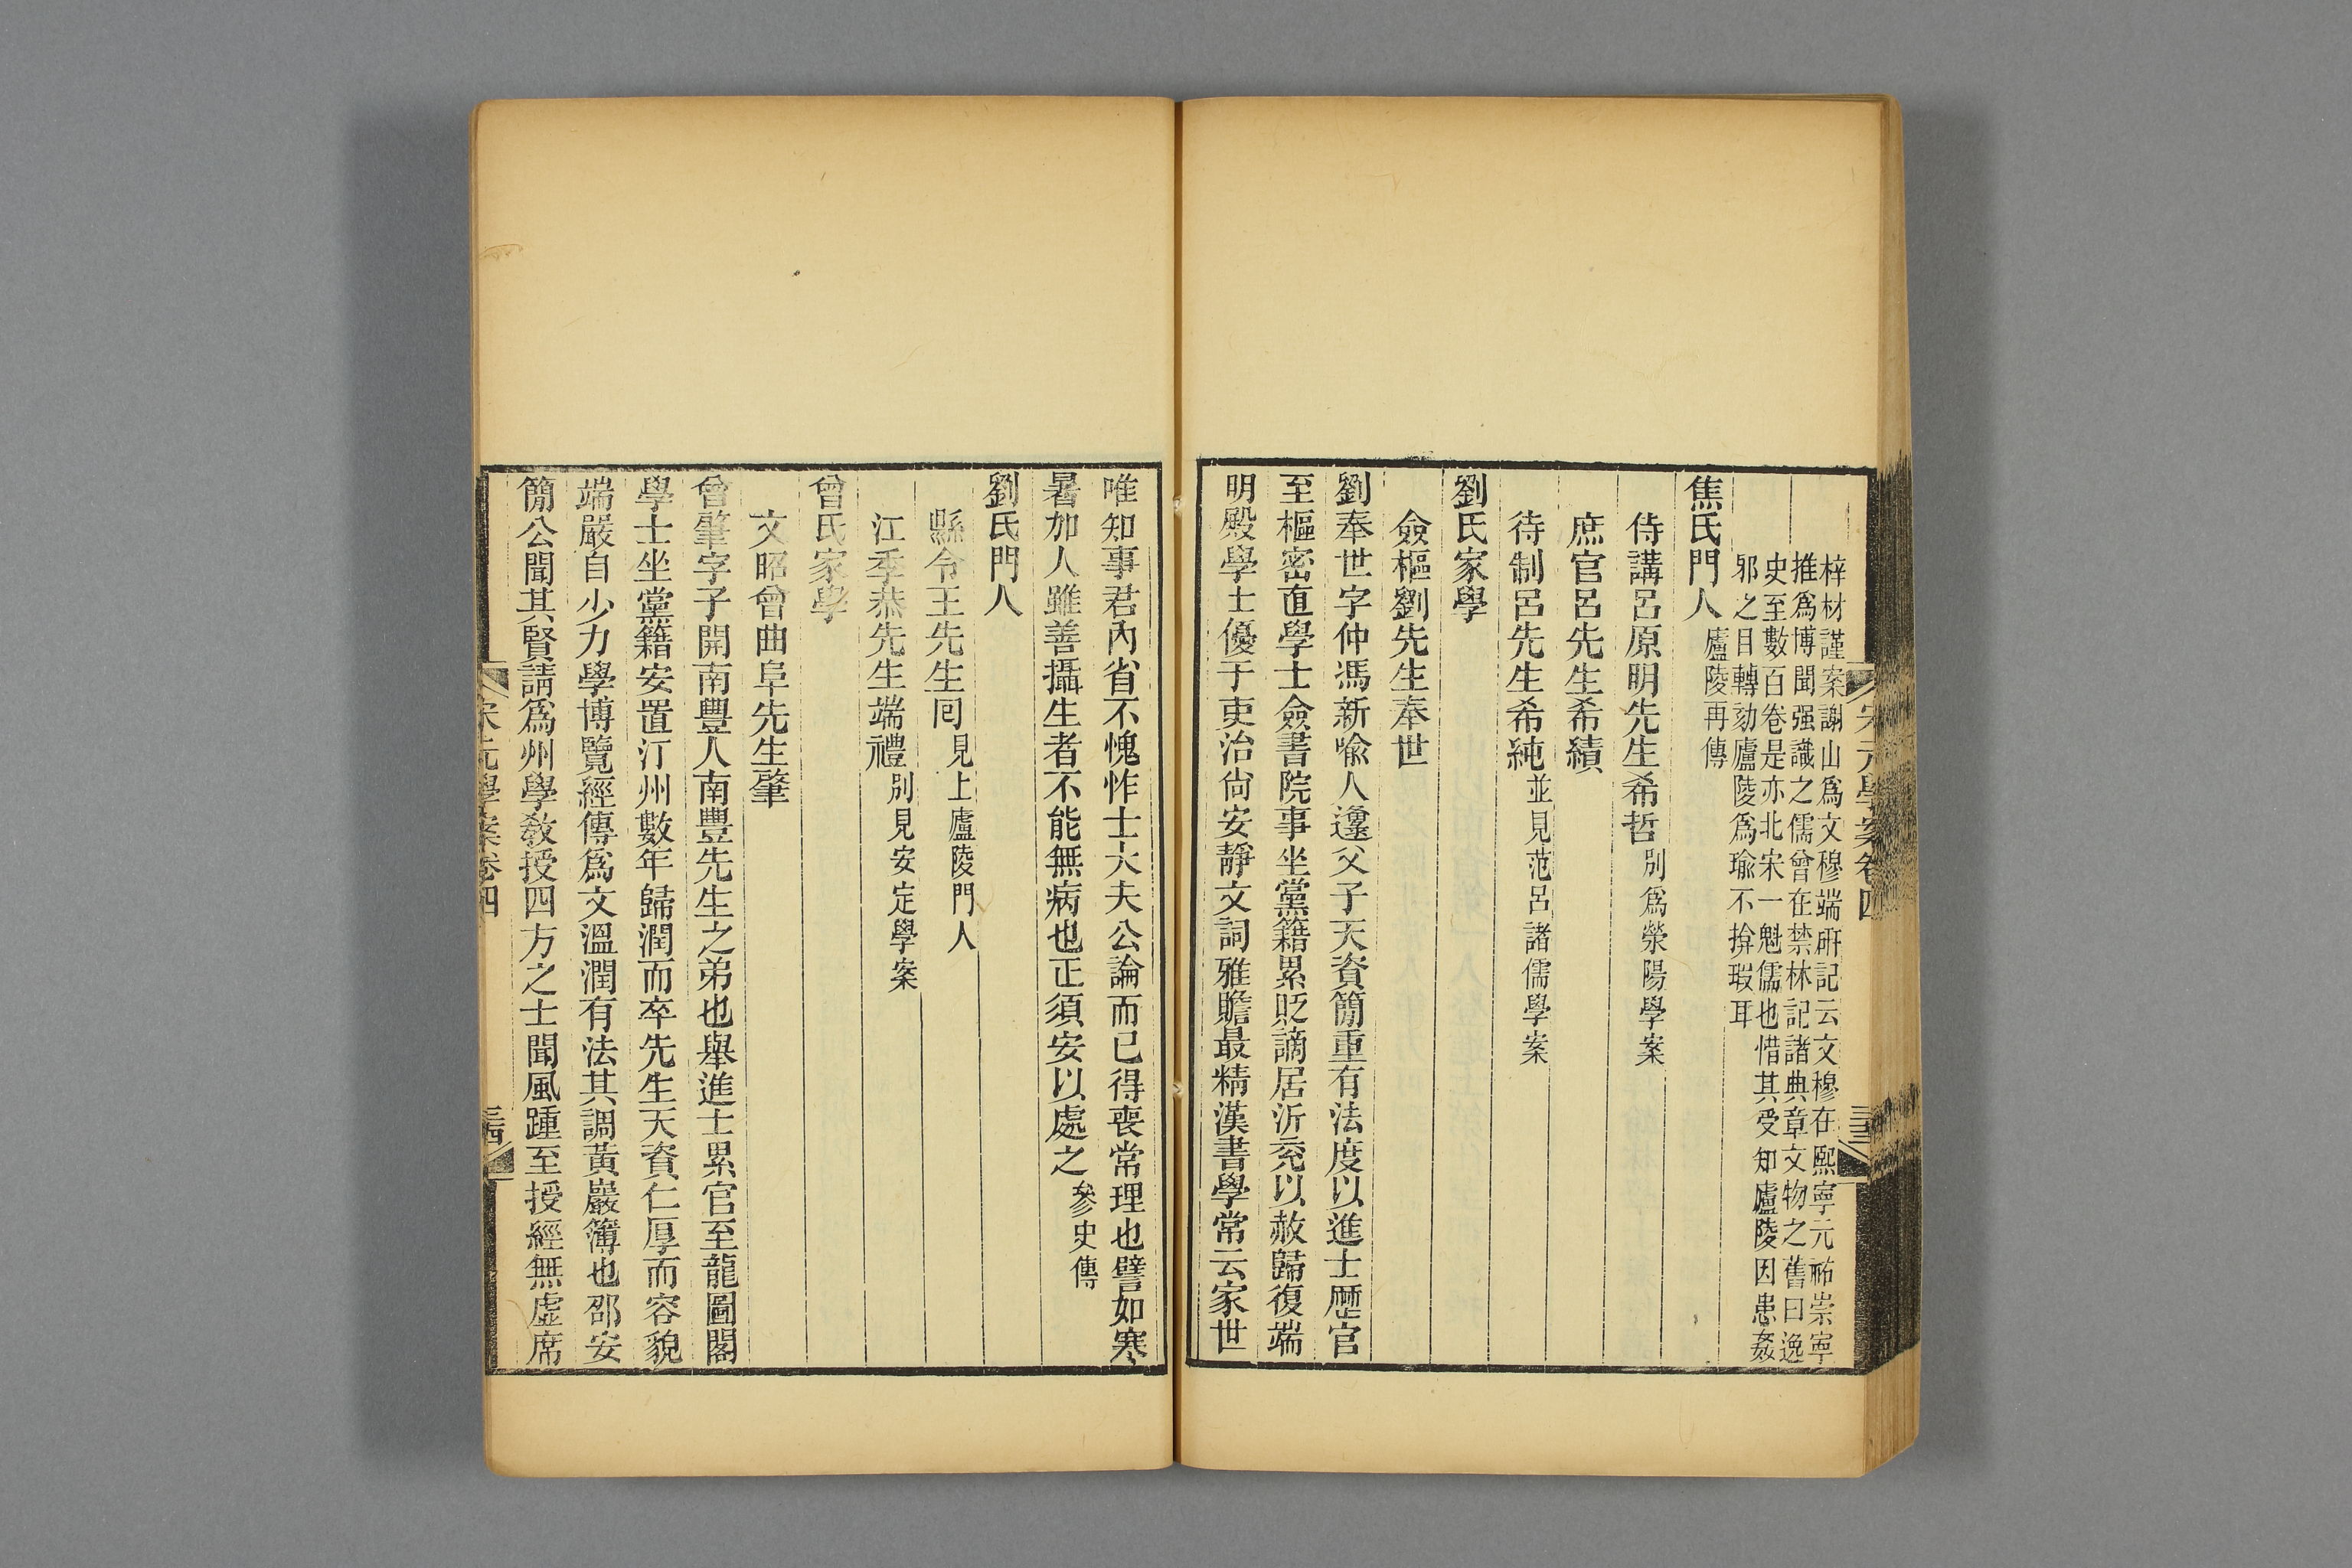 宋元學案卷四
三三
梓材謹案謝山爲文穆端硏記云文穆在熙寧元祐崇寧
推爲博聞强識之儒曾在禁林記諸典章文物之舊曰逸
史至數百卷是亦北宋一魁儒也惜其受知廬陵因患姦
邪之目轉劾廬陵爲瑜不揜瑕耳
焦氏門人廬陵再傳
侍講呂原明先生希哲別爲滎陽學案
庶官呂先生希績
待制呂先生希純並見范呂諸儒學案
劉氏家學
僉樞劉先生奉世
劉奉世字仲馮新喩人邍父子天資簡重有法度以進士歷官
至樞密直學士僉書院事坐黨籍累貶謫居沂兗以赦歸復端
明殿學士優于吏治尙安靜文詞雅贍最精漢書學常云家世
唯知事君內省不愧怍士大夫公論而已得喪常理也譬如寒
暑加人雖善攝生者不能無病也正須安以處之參史傳
劉氏門人
縣令王先生囘見上廬陵門人
江季恭先生端禮別見安定學案
曾氏家學
文昭曾曲阜先生肇
曾肇字子開南豐人南豐先生之弟也舉進士累官至龍圖閣
學士坐黨籍安置汀州數年歸潤而卒先生天資仁厚而容貌
端嚴自少力學博覽經傳爲文溫潤有法其調黃巖簿也邵安
簡公聞其賢請爲州學敎授四方之士聞風踵至授經無虛席
宋元學案卷四
三四